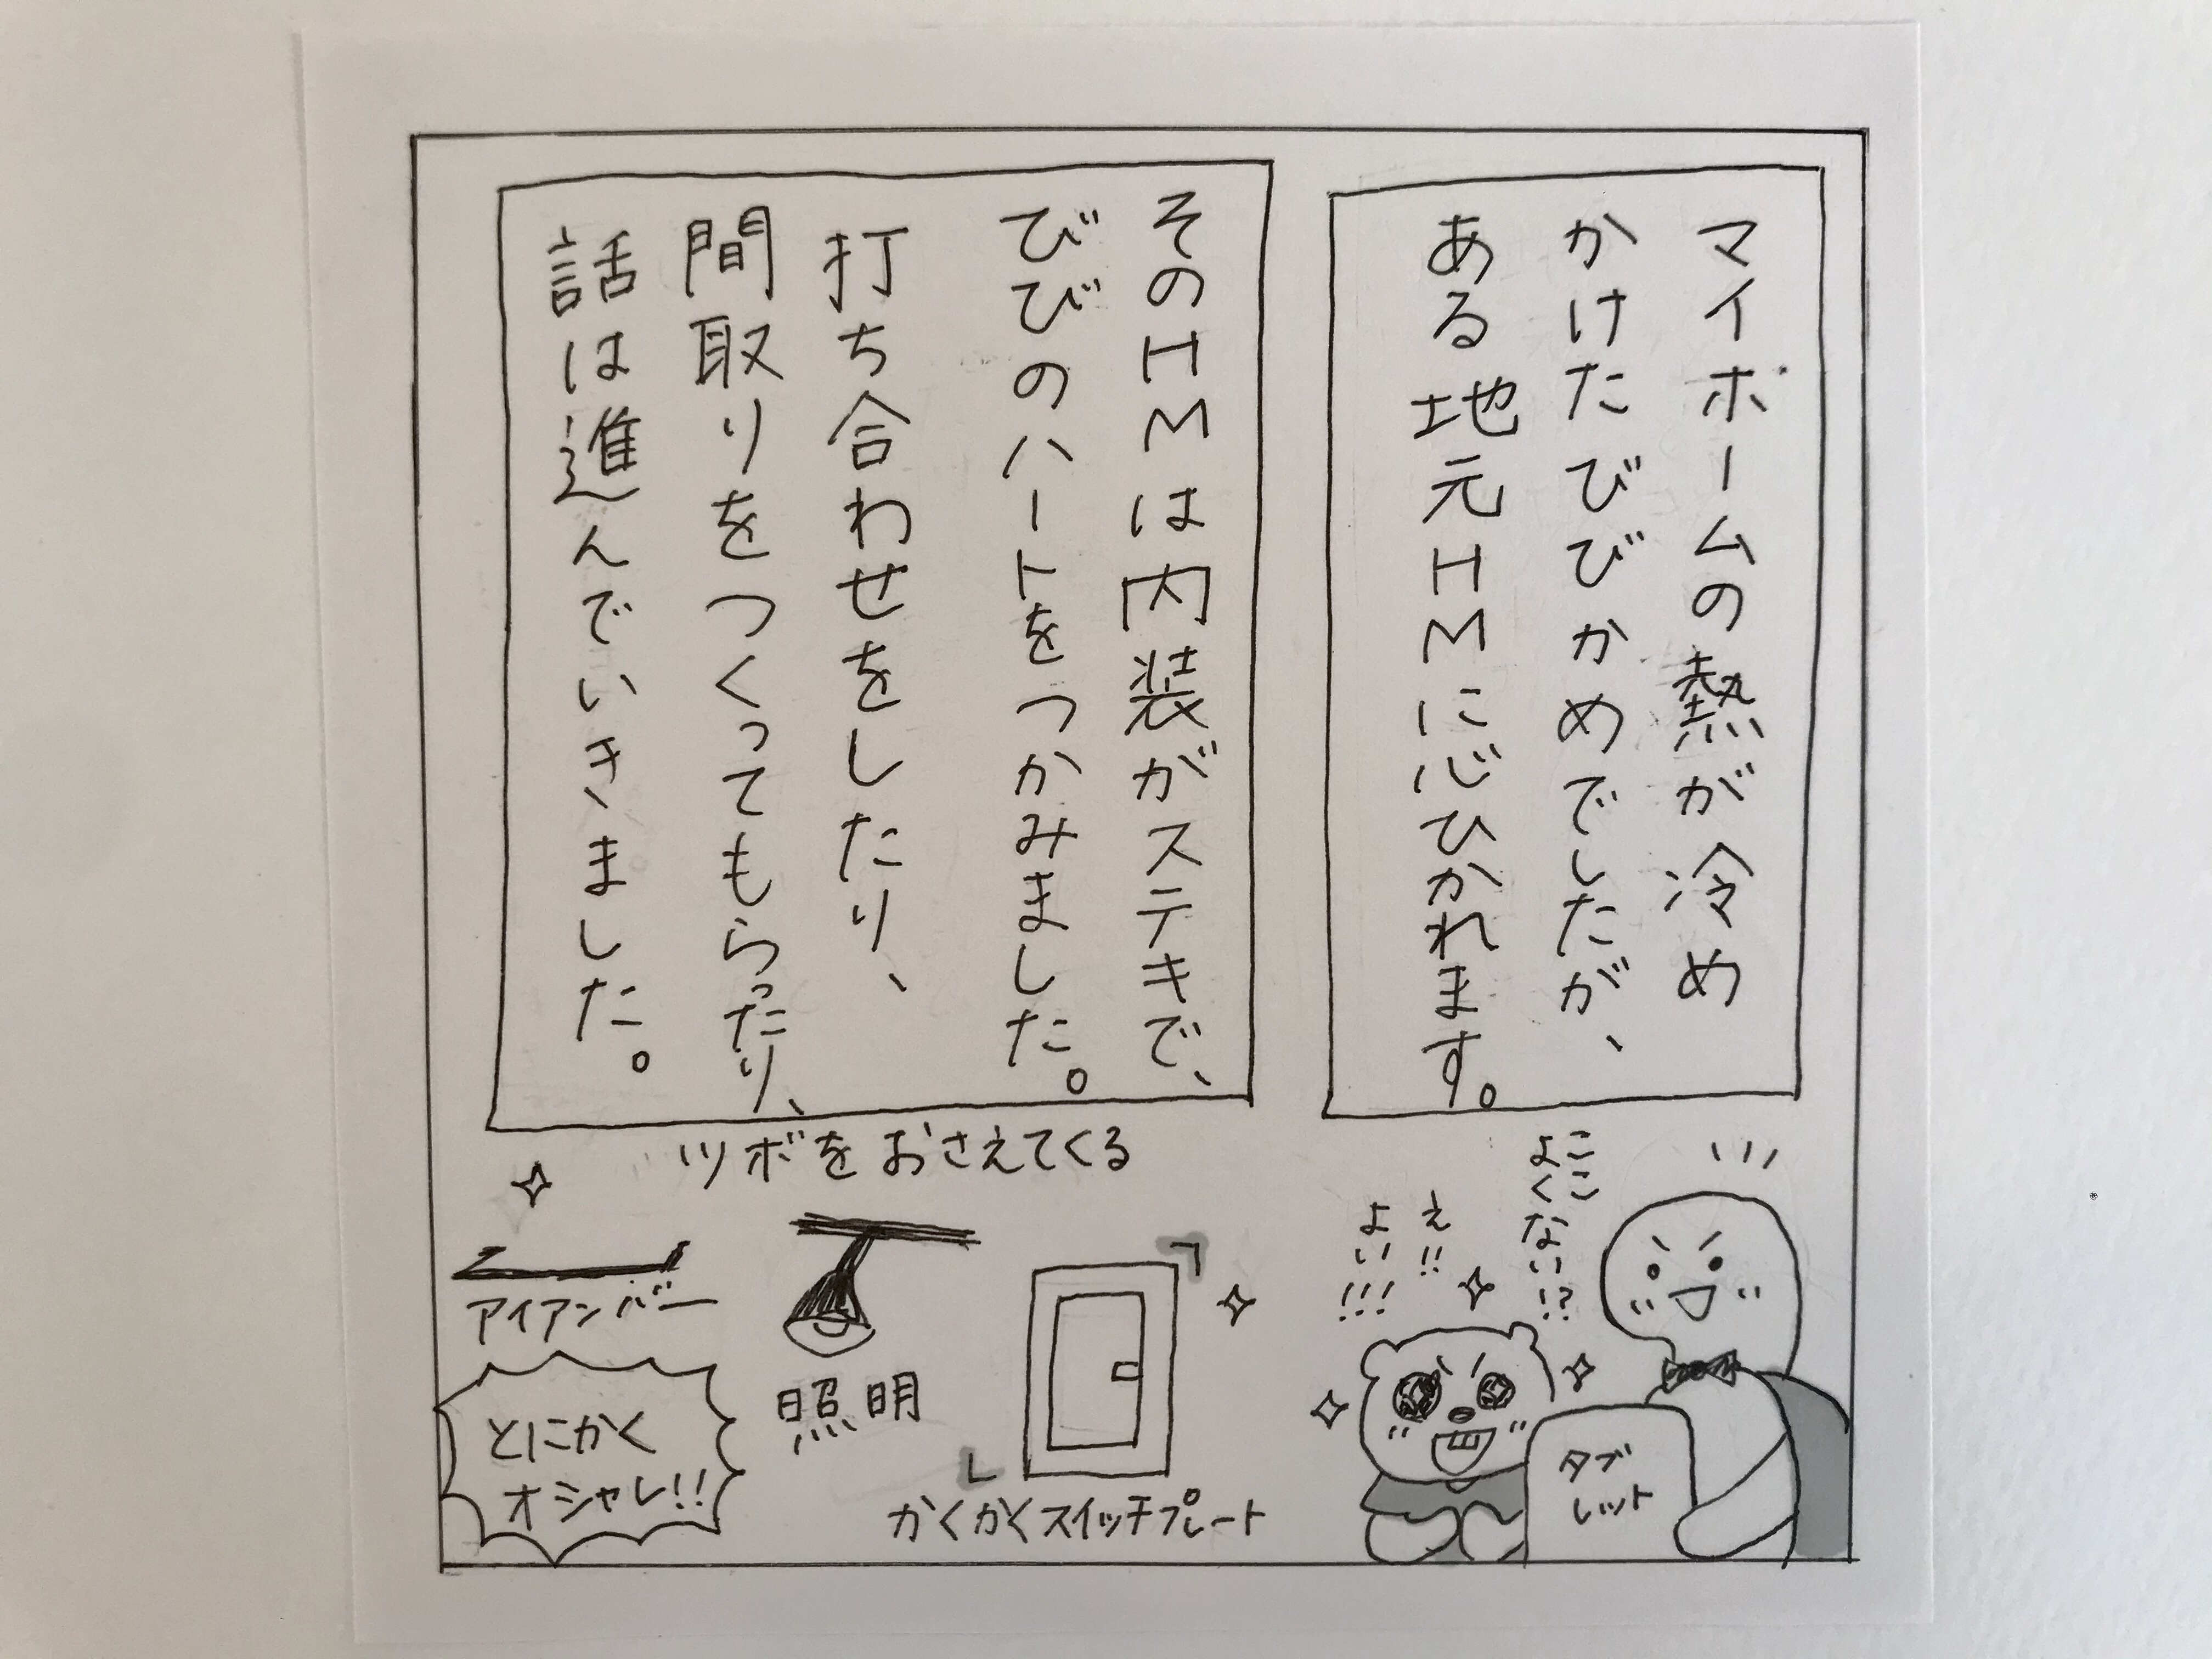 マイホームの熱が冷め
かけたびびかめでしたが、
ある地元HMに心ひかれます。
そのHMは内装がステキで、
びびのハートをつかみました。
打ち合わせをしたり、
間取りをつくってもらったり、
話は進んでいきました。
ここ
よくない!?
え!!
よい!!!
タブ
レット
ツボをおさえてくる
かくかくスイッチプレート
照明
アイアンバー
とにかく
オシャレ!!